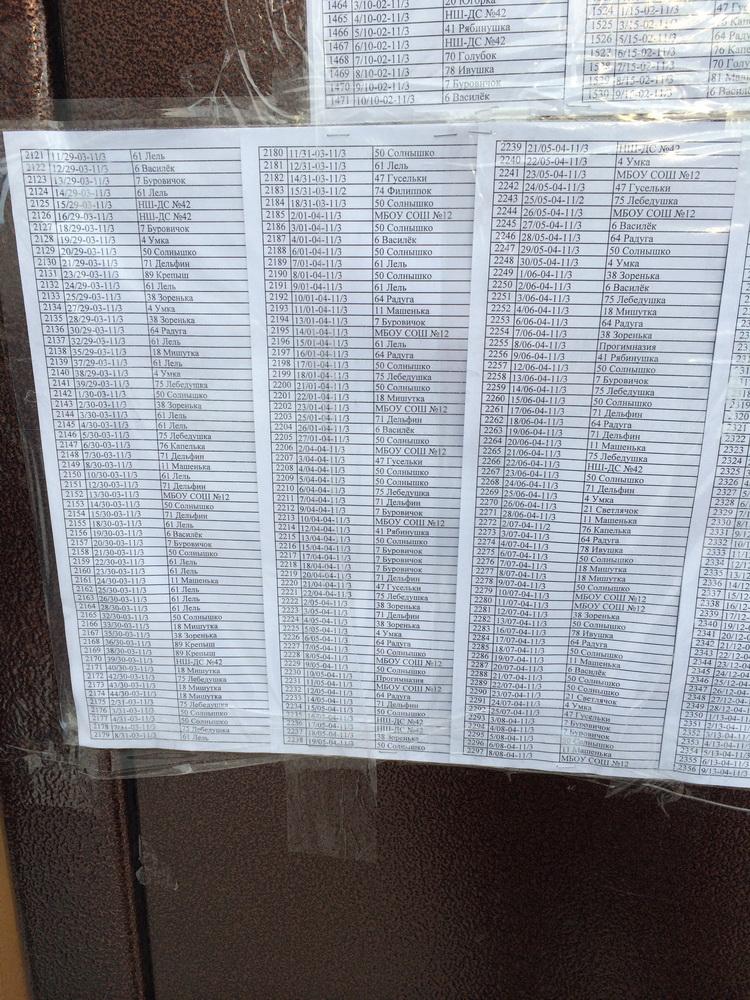 1464 3/10-02-11/3 20 Югорка
1465 4/10-02-11/3 НШ-ДС №42
1466 5/10-02-11/3 41 Рябинушка
1467 6/10-02-11/3 НШ-ДС №42
1468 7/10-02-11/3 70 Голубок
1469 8/10-02-11/3 78 Ивушка
1470 9/10-02-11/3 7 Буровичок
1471 10/10-02-11/3 6 Василёк
1524 1/15-02-11/3 47 Гус
1525 3/15-02-11/3 6 Василё
1526 5/15-02-11/3 64 Раду
1527 6/15-02-11/3 76 Капе
1528 7/15-02-11/3 70 Голу
2121 11/29-03-11/3 61 Лель
2122 12/29-03-11/3 6 Василёк
2123 13/29-03-11/3 7 Буровичок
2124 14/29-03-11/3 61 Лель
2125 15/29-03-11/3 НШ-ДС №42
2126 16/29-03-11/3 НШ-ДС №42
2127 18/29-03-11/3 7 Буровичок
2128 19/29-03-11/3 4 Умка
2129 20/29-03-11/3 50 Солнышко
2130 21/29-03-11/3 71 Дельфин
2131 23/29-03-11/3 89 Крепыш
2132 24/29-03-11/3 61 Лель
2133 25/29-03-11/3 38 Зоренька
2134 27/29-03-11/3 4 Умка
2135 28/29-03-11/3 38 Зоренька
2136 30/29-03-11/3 64 Радуга
2137 32/29-03-11/3 61 Лель
2138 35/29-03-11/3 18 Мишутка
2139 37/29-03-11/3 61 Лель
2140 38/29-03-11/3 4 Умка
2141 39/29-03-11/3 75 Лебедушка
2142 1/30-03-11/3 50 Солнышко
2143 2/30-03-11/3 38 Зоренька
2144 3/30-03-11/3 61 Лель
2145 4/30-03-11/3 61 Лель
2146 5/30-03-11/3 75 Лебедушка
2147 6/30-03-11/3 76 Капелька
2148 7/30-03-11/3 71 Дельфин
2149 8/30-03-11/3 11 Машенька
2150 10/30-03-11/3 61 Лель
2151 12/30-03-11/3 71 Дельфин
2152 13/30-03-11/3 МБОУ СОШ №12
2153 14/30-03-11/3 50 Солнышко
2154 15/30-03-11/3 71 Дельфин
2155 18/30-03-11/3 61 Лель
2156 19/30-03-11/3 6 Василек
2157 20/30-03-11/3 7 Буровичок
2158 21/30-03-11/3 50 Солнышко
2159 22/30-03-11/3 61 Лель
2160 23/30-03-11/3 61 Лель
2161 24/30-03-11/3 11 Машенька
2162 25/30-03-11/3 61 Лель
2163 26/30-03-11/3 61 Лель
2164 28/30-03-11/3 61 Лель
2165 32/30-03-11/3 50 Солнышко
2166 33/30-03-11/3 18 Мишутка
2167 35/30-03-11/3 38 Зоренька
2168 36/30-03-11/3 89 Крепыш
2169 38/30-03-11/3 89 Крепыш
2170 39/30-03-11/3 НШ-ДС №42
2171 40/30-03-11/3 18 Мишутка
2172 42/30-03-11/3 75 Лебедушка
2173 43/30-03-11/3 18 Мишутка
2174 44/30-03-11/3 18 Мишутка
2175 2/31-03-11/3 75 Лебедушка
2176 3/31-03-11/3 50 Солнышко
2177 4/31-03-11/3 50 Солнышко
2178 7/31-03-11/3 75 Лебедушка
2179 8/31-03-11/3 61 Лель
2180 11/31-03-11/3 50 Солнышко
2181 12/31-03-11/3 61 Лель
2182 14/31-03-11/3 47 Гусельки
2183 15/31-03-11/2 74 Филиппок
2184 18/31-03-11/3 50 Солнышко
2185 2/01-04-11/3 МБОУ СОШ №12
2186 3/01-04-11/3 50 Солнышко
2187 4/01-04-11/3 6 Василёк
2188 6/01-04-11/3 50 Солнышко
2189 7/01-04-11/3 61 Лель
2190 8/01-04-11/3 50 Солнышко
2191 9/01-04-11/3 61 Лель
2192 10/01-04-11/3 64 Радуга
2193 11/01-04-11/3 11 Машенька
2194 13/01-04-11/3 7 Буровичок
2195 14/01-04-11/3 МБОУ СОШ №12
2196 15/01-04-11/3 61 Лель
2197 16/01-04-11/3 64 Радуга
2198 17/01-04-11/3 50 Солнышко
2199 18/01-04-11/3 75 Лебедушка
2200 21/01-04-11/3 50 Солнышко
2201 22/01-04-11/3 18 Мишутка
2202 23/01-04-11/3 МБОУ СОШ №12
2203 25/01-04-11/3 71 Дельфин
2204 26/01-04-11/3 6 Василёк
2205 27/01-04-11/3 50 Солнышко
2206 2/04-04-11/3 МБОУ СОШ №12
2207 3/04-04-11/3 47 Гусельки
2208 4/04-04-11/3 50 Солнышко
2209 5/04-04-11/3 50 Солнышко
2210 6/04-04-11/3 75 Лебедушка
2211 7/04-04-11/3 71 Дельфин
2212 9/04-04-11/3 7 Буровичок
2213 10/04-04-11/3 МБОУ СОШ №12
2214 12/04-04-11/3 41 Рябинушка
2215 13/04-04-11/3 50 Солнышко
2216 15/04-04-11/3 7 Буровичок
2217 17/04-04-11/3 7 Буровичок
2218 18/04-04-11/3 7 Буровичок
2219 20/04-04-11/3 71 Дельфин
2220 21/04-04-11/3 47 Гусельки
2221 22/04-04-11/3 75 Лебедушка
2222 2/05-04-11/3 38 Зоренька
2223 3/05-04-11/3 71 Дельфин
2224 4/05-04-11/3 38 Зоренька
2225 5/05-04-11/3 4 Умка
2226 6/05-04-11/3 64 Радуга
2227 7/05-04-11/3 50 Солнышко
2228 8/05-04-11/3 МБОУ СОШ №12
2229 9/05-04-11/3 50 Солнышко
2230 10/05-04-11/3 Прогимназия
2231 11/05-04-11/3 МБОУ СОШ №12
2232 12/05-04-11/3 64 Радуга
2233 14/05-04-11/3 71 Дельфин
2234 15/05-04-11/3 50 Солнышко
НШ-ДС №42
НШ-ДС №42
38 Зоренька
2238 19/05-04-11/3 50 Солнышко
2239 21/05-04-11/3 НШ-ДС №42
2240 22/05-04-11/3 4 Умка
2241 23/05-04-11/3 МБОУ СОШ №12
2242 24/05-04-11/3 47 Гусельки
2243 25/05-04-11/2 75 Лебедушка
2244 26/05-04-11/3 МБОУ СОШ №12
2245 27/05-04-11/3 6 Василёк
2246 28/05-04-11/3 64 Радуга
2247 29/05-04-11/3 50 Солнышко
2248 30/05-04-11/3 4 Умка
2249 1/06-04-11/3 38 Зоренька
2250 2/06-04-11/3 6 Василёк
2251 3/06-04-11/3 75 Лебедушка
2252 4/06-04-11/3 18 Мишутка
2253 6/06-04-11/3 64 Радуга
2254 7/06-04-11/3 38 Зоренька
2255 8/06-04-11/3 Прогимназия
2256 9/06-04-11/3 41 Рябинушка
2257 12/06-04-11/3 50 Солнышко
2258 13/06-04-11/3 7 Буровичок
2259 14/06-04-11/3 75 Лебедушка
2260 15/06-04-11/3 50 Солнышко
2261 17/06-04-11/3 71 Дельфин
2262 18/06-04-11/3 64 Радуга
2263 19/06-04-11/3 71 Дельфин
2264 20/06-04-11/3 11 Машенька
2265 21/06-04-11/3 75 Лебедушка
2266 22/06-04-11/3 НШ-ДС №42
2267 23/06-04-11/3 50 Солнышко
2268 24/06-04-11/3 71 Дельфин
2269 25/06-04-11/3 4 Умка
2270 26/06-04-11/3 21 Светлячок
2271 28/06-04-11/3 11 Машенька
2272 2/07-04-11/2 76 Капелька
2273 3/07-04-11/3 64 Радуга
2274 4/07-04-11/3 78 Ивушка
2275 6/07-04-11/3 50 Солнышко
2276 7/07-04-11/3 18 Мишутка
2277 8/07-04-11/3 18 Мишутка
2278 9/07-04-11/3 50 Солнышко
2279 10/07-04-11/3 МБОУ СОШ №12
2280 11/07-04-11/3 МБОУ СОШ №12
2281 12/07-04-11/3 38 Зоренька
2282 13/07-04-11/3 50 Солнышко
2283 16/07-04-11/3 78 Ивушка
2284 17/07-04-11/3 64 Радуга
2285 18/07-04-11/3 50 Солнышко
2286 19/07-04-11/3 11 Машенька
2287 20/07-04-11/3 6 Василек
2288 21/07-04-11/3 50 Солнышко
2289 22/07-04-11/3 50 Солнышко
2290 23/07-04-11/3 21 Светлячок
24/07-04-11/3 4 Умка
25/07-04-11/3 47 Гусельки
2293 3/08-04-11/3 7 Буровичок
2294 4/08-04-11/3 7 Буровичок
2295 5/08-04-11/3 50 Солнышко
2296 6/08-04-11/3 11 Машенька
2297 8/08-04-11/3 МБОУ СОШ №12
2322
2323
2324
2325
2326
2327
2328
2329
2354
2355 6/13-04-11
2356 9/13-04-11